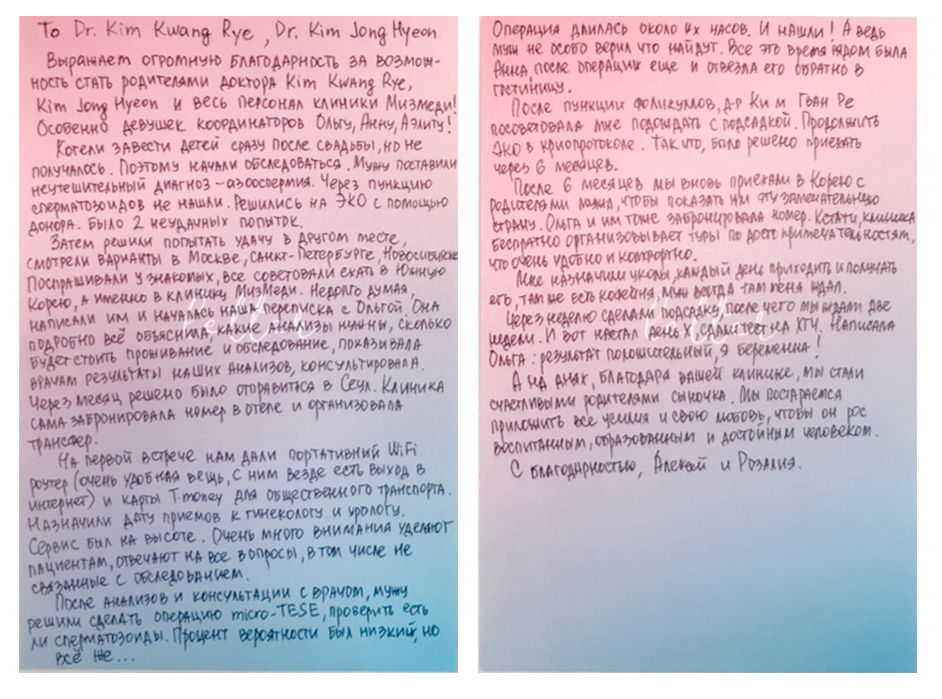 To Dr. Kim Kwang Rye, Dr. Kim Jong Hyeon
Выражает огромную благодарность за возмож-
ность стать родителями доктора Kim Kwang Rye,
Kim Jong Hyeon и весь персонал клиники Мизмеди!
Особенно девушек координаторов Ольгу, Анну, Аэлиту!
Хотели завести детей сразу после свадьбы, но не
получалось. Поэтому начали обследоваться. Мужу поставили
неутешительный диагноз - азооспермия. Через пункцию
сперматозоидов не нашли. Решились на ЭКО с помощью
донора. Было 2 неудачных попыток.
Затем решили попытать удачу в другом месте,
смотрели варианты в Москве, Санкт-Петербурге, Новосибирске
Поспрашивали у знакомых, все советовали ехать в Южную
Корею, а именно в клинику МизМеди. Недолго думая,
написали им и началась наша переписка с Ольгой. Она
подробно всё объяснила, какие анализы нужны, сколько
будет стоить проживание и обследование, показывала
врачам результаты наших анализов, консультировала.
Через месяц решено было отправиться в Сеул. Клиника
сама забронировала номер в отеле и организовала
трансфер.
На первой встрече нам дали портативный WiFi
роутер (очень удобная вещь, с ним везде есть выход в
интернет) и карты T-money для общественного транспорта.
Назначили дату приемов к гинекологу и урологу.
Сервис был на высоте. Очень много внимания уделяют
пациентам, отвечают на все вопросы, в том числе не
связанные с обследованием.
После анализов и консультации с врачом, мужу
решили сделать операцию micro-TESE, проверить есть
ли сперматозоиды. Процент вероятности был низкий, но
всё же...
Операция длилась около их часов. И нашли! А ведь
муж не особо верил что найдут. Все это время рядом была
Анна, после операции еще и отвезла его обратно в
гостиницу.
После пункции фоликулов, д-р Ким Гван Ре
посоветовала мне подождать с подсадкой. Продолжить
ЭКО в криопротоколе. Так что, было решено приехать
через 6 месяцев.
После 6 месяцев мы вновь приехали в Корею с
родителями мужа, чтобы показать им эту замечательную
страну. Ольга и им тоже забронировала номер. Кстати, клиника
бесплатно организовывает туры по достопримечательностям,
что очень удобно и комфортно.
Мне назначили уколы, каждый день приходить и получать
его, там же есть кофейня, муж всегда там меня ждал.
Через неделю сделали подсадку, после чего мы ждали две
недели. И вот настал день X, сдали тест на ХГЧ. Написала
Ольга: результат положительный, я беременна!
А на днях, благодаря вашей клинике, мы стали
счастливыми родителями сыночка. Мы постараемся
приложить все усилия и свою любовь, чтобы он рос
воспитанным, образованным и достойным человеком.
С благодарностью, Алексей и Розалия.